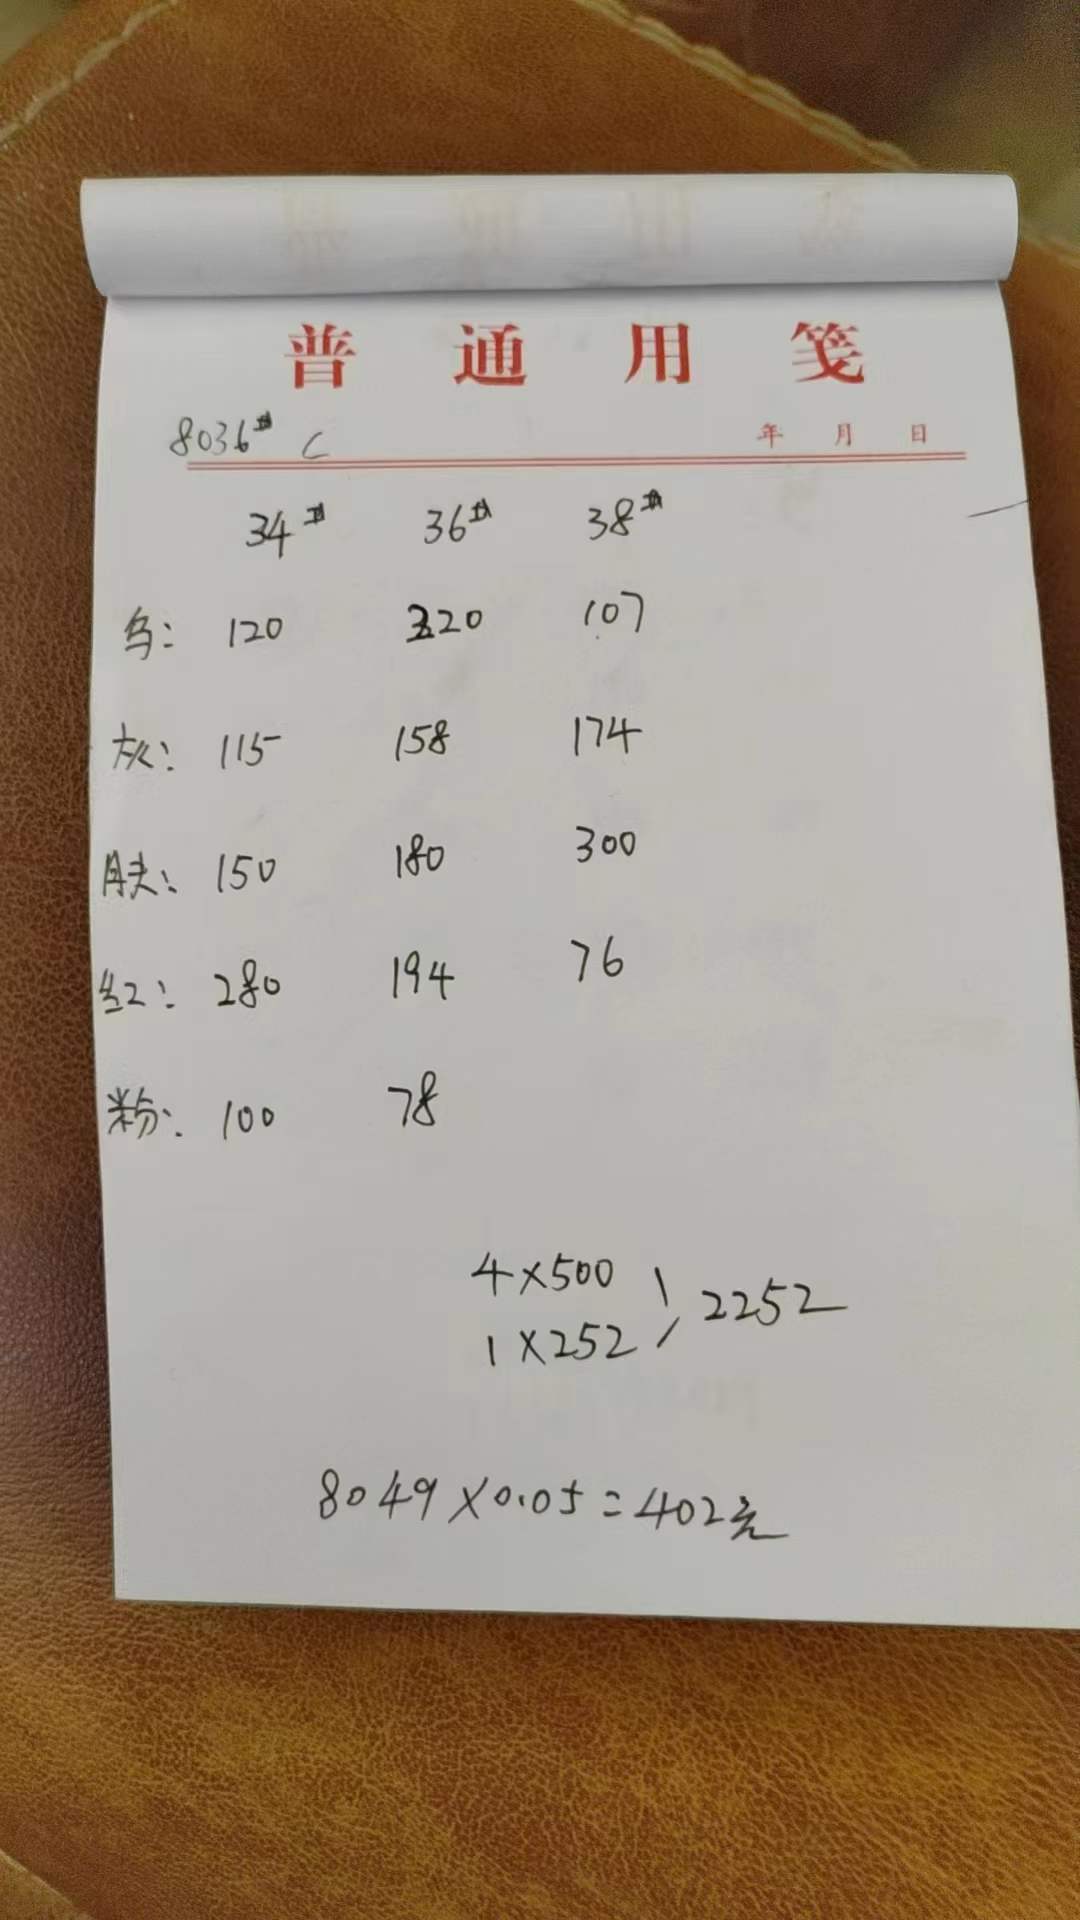 普通用笺
8036# C 年 月 日
34# 36# 38#
乌: 120 220 107
灰: 115 158 174
肤: 150 180 300
红: 280 194 76
粉: 100 78
4×500
1×252 } 2252
8049×0.05=402元